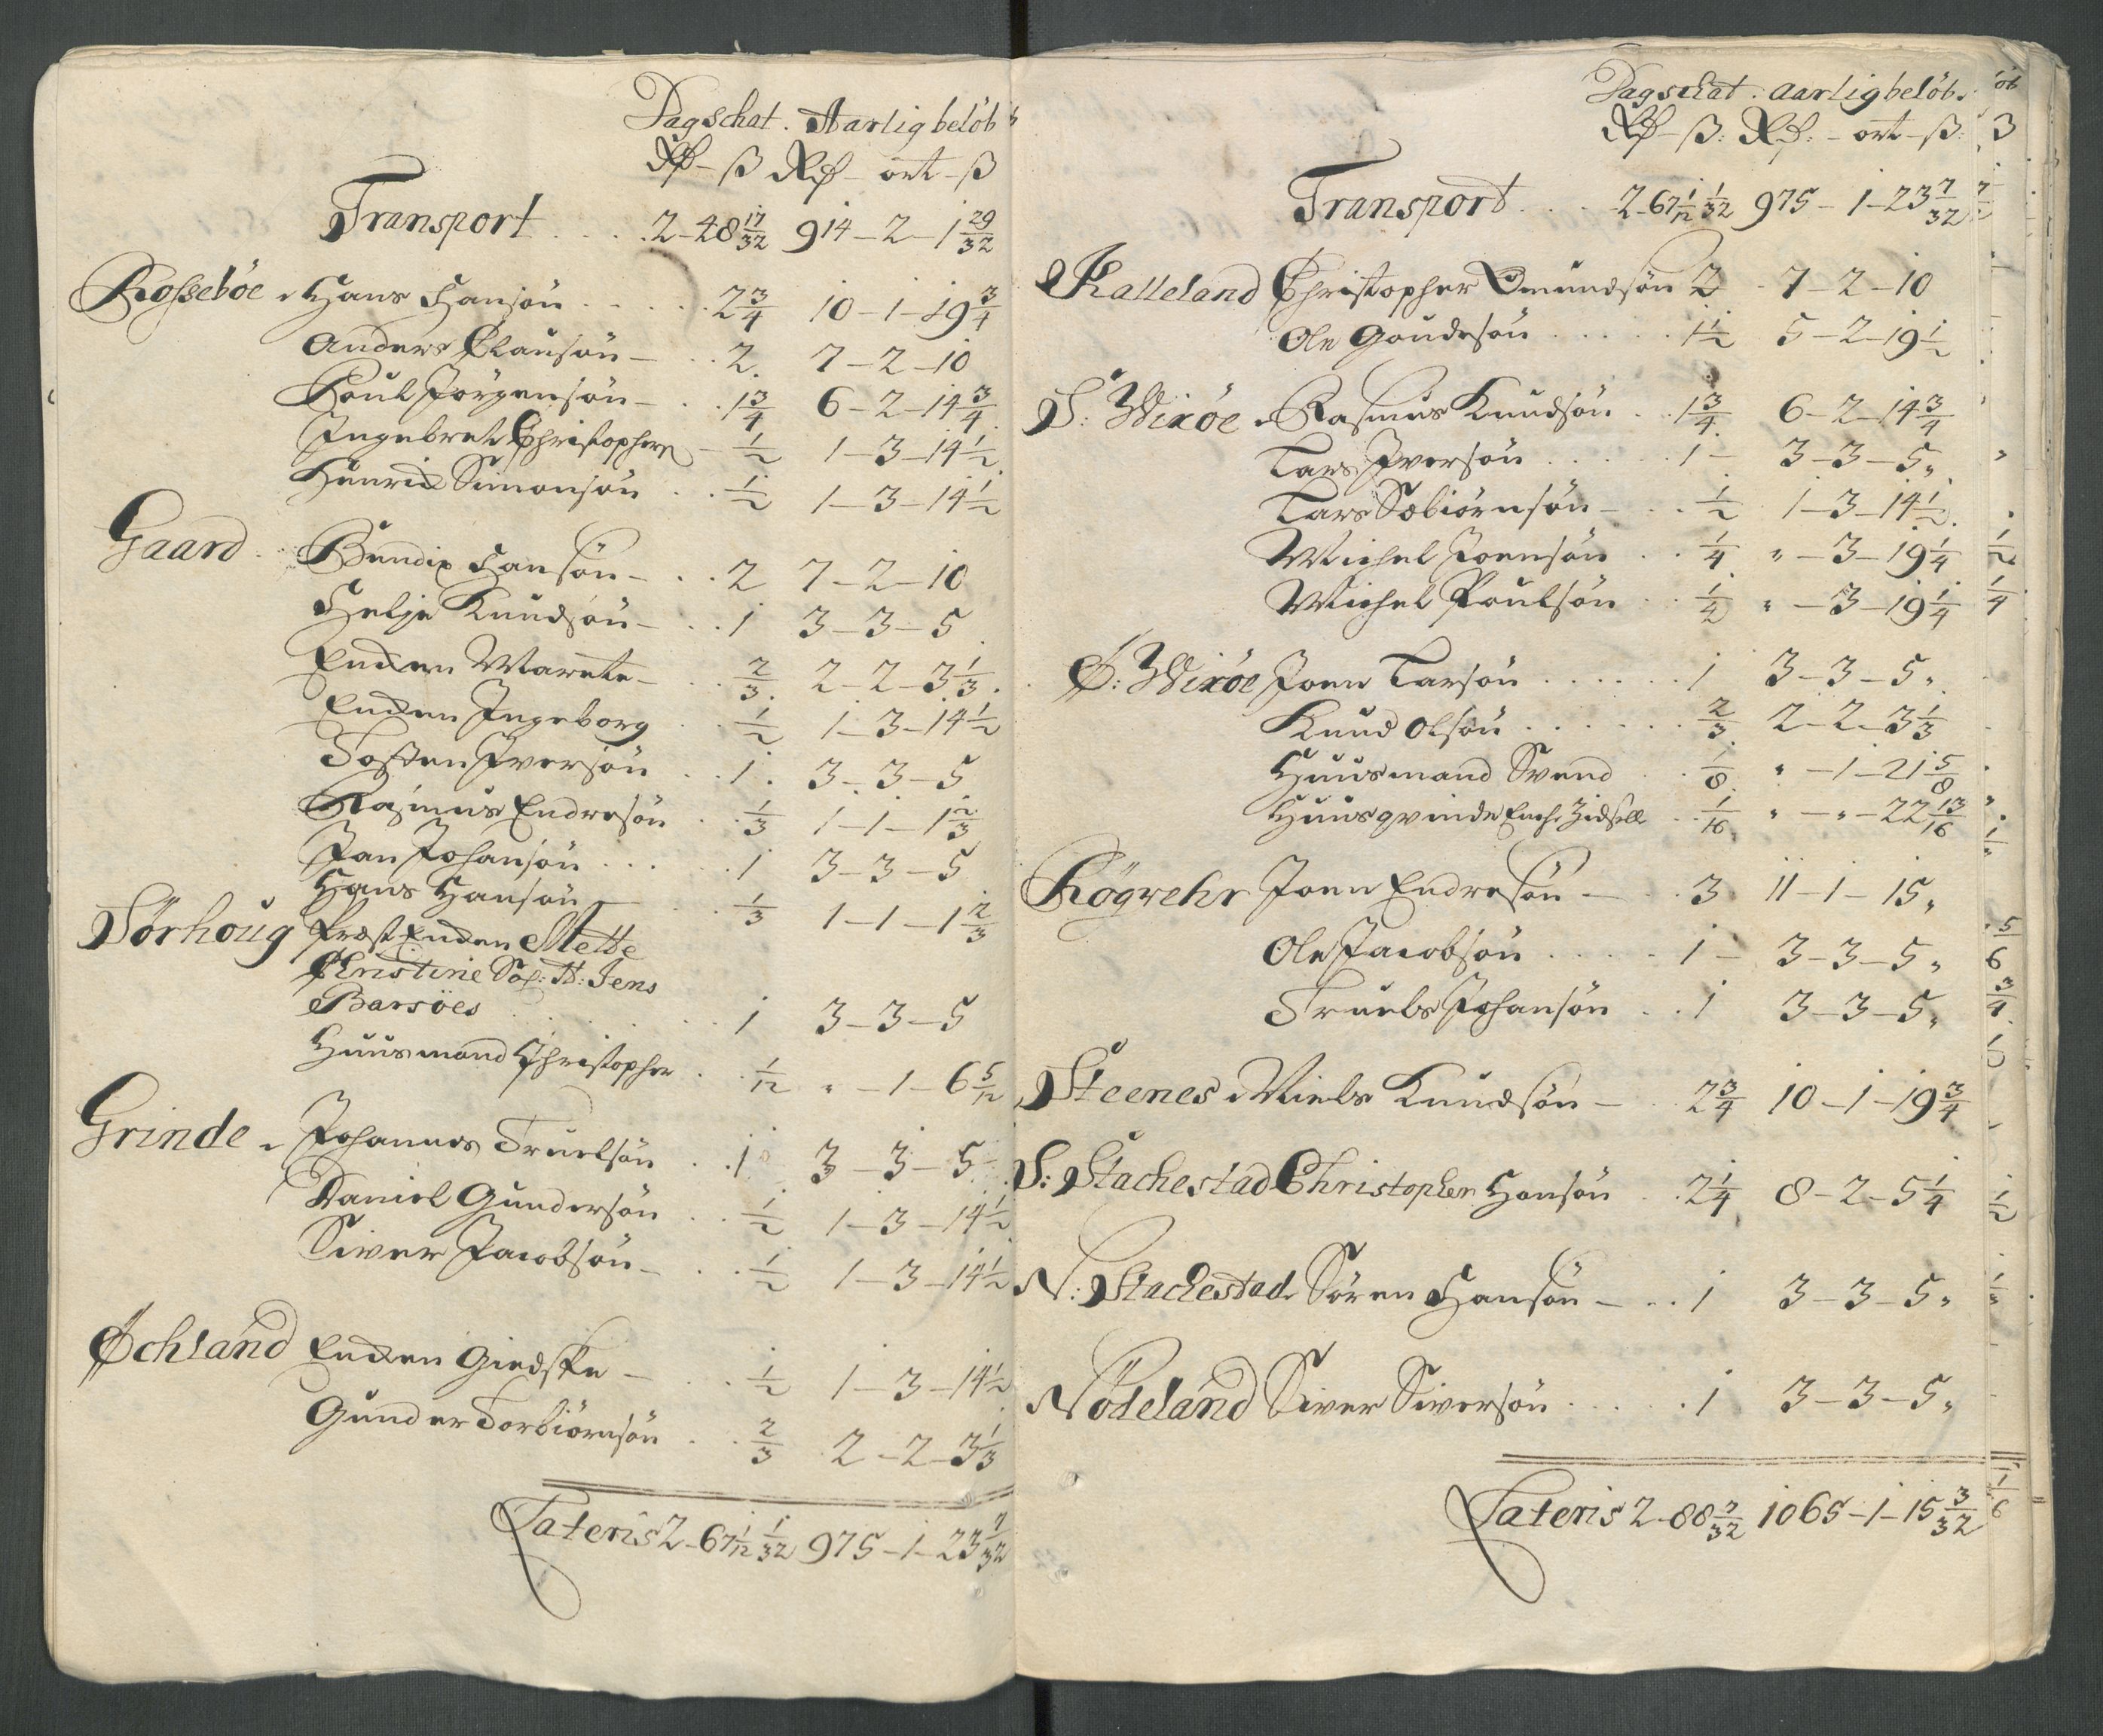 Dagschat. Aarlig belöb
Rd – ß Rd – ort – ß
Transport . . . . 2–48 17/32 914–2–1 29/32
Rosseböe Hans Hansön . . . . 2 3/4 10–1–19 3/4
Anders Clausön – . . 2. 7–2–10
Poul Jörgensön – . . 1 3/4 6–2–14 3/4
Ingebret Christophers – 1/2 1–3–14 1/2
Henrich Simonsön . . 1/2 1–3–14 1/2
Gaard Bendix Hansön – . . 2 7–2–10
Helje Knudsön – . . 1 3–3–5
Encken Marete – . . 2/3. 2–2–3 1/3.
Encken Ingeborg . . 1/2 1–3–14 1/2
Tosten Iversön . . 1. 3–3–5
Rasmus Endresön . . 1/3 1–1–1 2/3
Jan Johansön . . . . 1 3–3–5
Hans Hansön – . 1/3 1–1–1 2/3
Sörhoug Præst Encken Mette
Christine Sal: H: Jens
Barsöes . . . . . . 1 3–3–5
Huusmand Christopher . . 1/12 " –1–6 5/12
Grinde Johannes Truelsön . . 1 3–3–5
Daniel Gundersön . . 1/2 1–3–14 1/2
Siver Jacobsön – . . 1/2 1–3–14 1/2
Øchland Encken Giedske – . . 1/2 1–3–14 1/2
Gunder Torbiörnsön . . 2/3 2–2–3 1/3
Lateris 2–67 1/12 1/32 975–1–23 7/32
Dagschat. aarlig belöb.
Rd – ß: Rd: – ort – ß:
Transport . . . 2–67 1/12 1/32 975–1–23 7/32
Kalleland Christopher Omundsön 2 7–2–10
Ole Goudesön . . . . . 1 1/2 5–2–19 1/2
S: Wixöe Rasmus Knudsön . . 1 3/4 6–2–14 3/4
Lars Iversön . . . . . 1 – 3–3–5"
Lars Sebiörnsön – . . 1/2 1–3–14 1/2.
Michel Joensön . . 1/4 " –3–19 1/4
Michel Poulsön . . 1/4 " –3–19 1/4
Ø: Wixöe Joen Larsön . . . . . . 1 3–3–5"
Knud Olsön . . . . . . 2/3 2–2–3 1/3
Huusmand Svend . . 1/8 " –1–21 5/8
Huusqvinde . . 1/16 " – " –22 13/16
Rögvehr Joen Endresön – . . 3 11–1–15"
Ole Jacobsön . . . . . 1 – 3–3–5"
Truels Johansön . . 1 3–3–5"
Steenes Niels Knudsön – . . 2 3/4 10–1–19 3/4
S: Stachestad Christopher Hansön . . 2 1/4 8–2–5 1/4
N: Stachestad Sören Hansön – . . 1 3–3–5"
Nödeland Siver Siversön . . . . . 1 3–3–5"
Lateris 2–88 7/32 1065–1–15 3/32